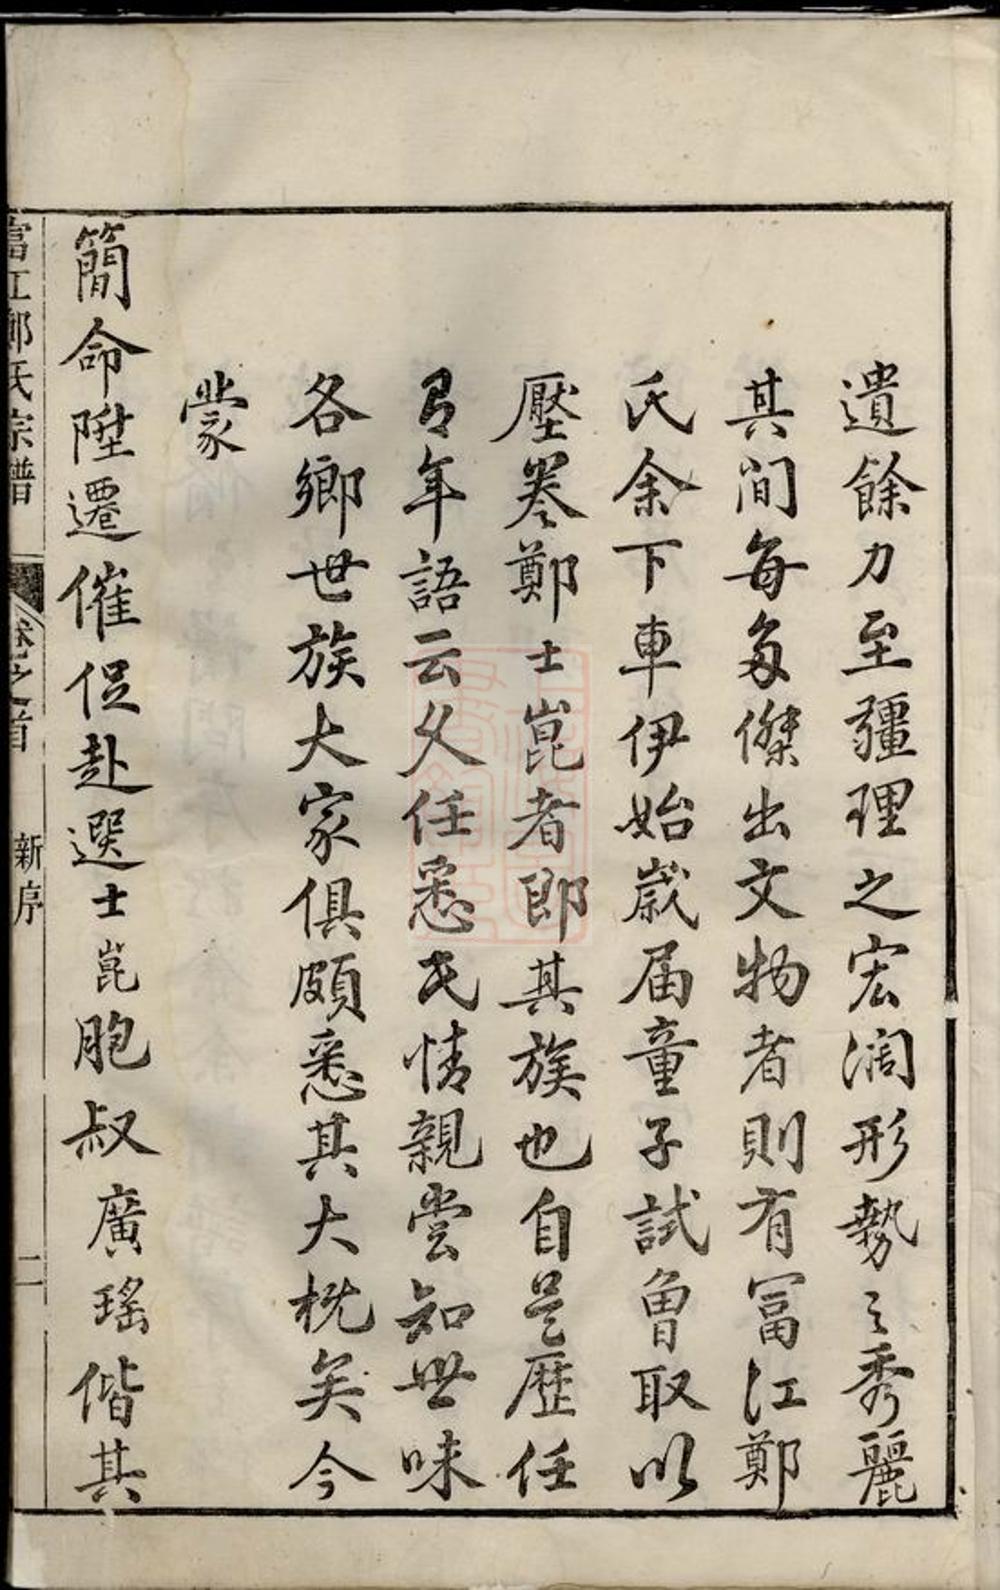 遺餘力至疆理之宏濶形勢之秀麗
其間每多傑出文物者則有冨江鄭
氏余下車伊始歲届童子試曾取以
壓卷鄭士崑者即其族也自是歷任
有年語云久任悉民情親嘗知世味
各鄉世族大家俱頗悉其大槩矣今
蒙
簡命陞遷催促赴選士崑胞叔廣瑤偕其
富江鄭氏宗譜 卷之首 新序 二